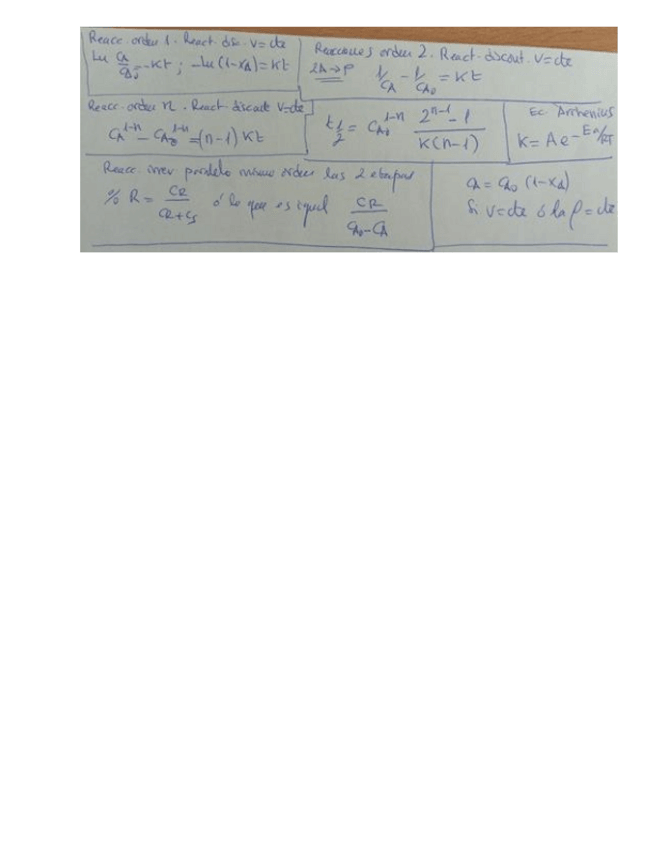 Reacc. orden 1. React. disc. V=cte
Ln CA/CA0 = -Kt ; -ln(1-XA) = Kt
Reacciones orden 2. React. discont. V=cte
2A→P 1/CA - 1/CA0 = Kt
Reacc. orden n. React. discont V=cte
CA^1-n - CA0^1-n = (n-1) Kt
t 1/2 = CA0^1-n (2^n-1 - 1)/(K(n-1))
Ec. Arrhenius
K = A e^-Ea/RT
Reacc. irrev paralelo mismo orden las 2 etapas
% R = CR/(CR+CS) ó lo que es igual CR/(CA0-CA)
CA = CA0 (1-XA)
Si V=cte ó la ρ=cte